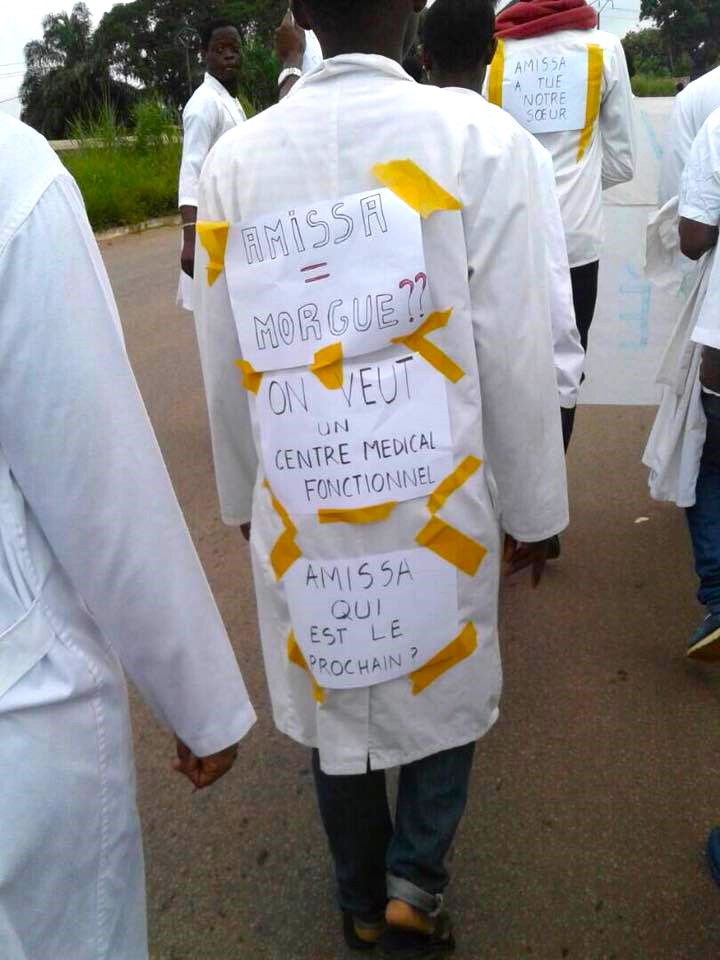 AMISSA
=
MORGUE??
ON VEUT
UN
CENTRE MEDICAL
FONCTIONNEL
AMISSA
QUI
EST LE
PROCHAIN?
AMISSA
A TUE
NOTRE
SŒUR